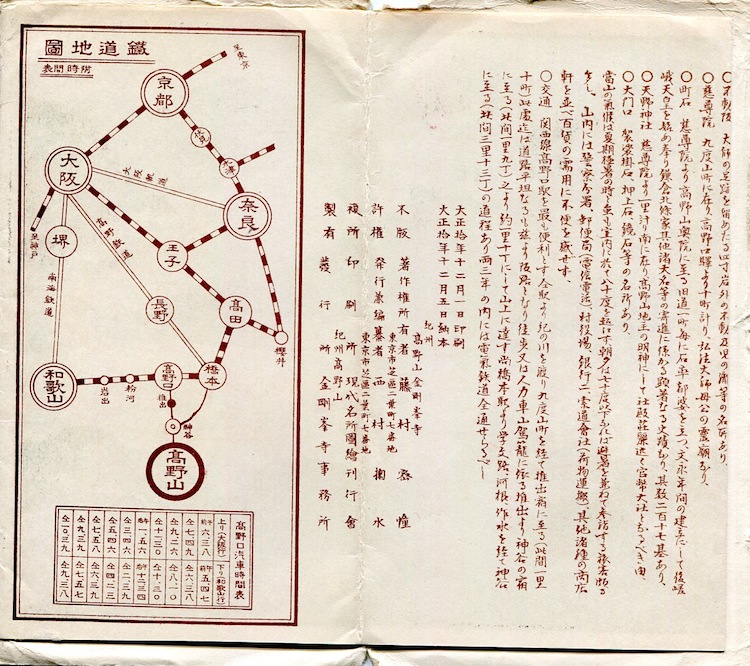 ○不動阪 大師の足跡を留めたる四寸岩外の不動及児の瀧等の名所あり、
○慈尊院 九度山町に在り高野口驛より十町計り、弘法大師母公の靈廟なり、
○町石 慈尊院より高野山奥院に至る旧道一町毎に石率都婆を立つ、文永年間の建立にして後嵯
峨天皇を始め奉り鎌倉北條家其他諸大名等の寄進に係る顕著なる史蹟なり、其数二百十七基あり、
○天野神社 慈尊院より一里計り南に在り高野山地主の明神にして社殿荘麗近く官幣大社となるべき由、
○大門口 袈裟掛石押上石鏡石等の名所あり、
當山の氣候は夏期極暑の時と雖も室内に於て八十度を超えず朝夕は七十度以下なれば避暑を兼ねて参詣する旅客頗る
多し、山内には警察分署、郵便局(電信電話)村役場、銀行、二乗道會社(荷物運搬)其他諸種の商店
軒を並べ百貨の需用に不便を感せす、
○交通 関西線高野口駅を最も便利とす仝駅より紀の川を渡り九度山町を経て推出嶽に至る(此間一里
十町)此處迄は道路平坦なるも茲より阪路となり徒歩又は人力車山駕籠に依る推出より神谷の宿
に至る(此間一里九丁)之より約一里十丁にして山上に達す尚橋本駅より学文路、河根、作水を経て神谷
に至る(此間三里十三丁)の道程あり両三年の内には電氣鉄道全通せらるべし
大正拾年十二月一日印刷
大正拾年十二月五日納本
紀州
高野山金剛峯寺
不版 著作權所有者 藤村密幢
東京市芝區二葉町七番地
許權 発行兼編纂者 西村掬水
東京市芝區二葉町七番地
複所 印刷所 現代名所圖繪刊行會
紀州高野山
製有 發行所 金剛峯寺事務所
鐵道地圖
附時間表
至東京
京都
伏見
木津
大阪
大阪鉄道
奈良
至神戸
堺
高野鉄道
王子
南海鉄道
長野
高田
櫻井
和歌山
岩出
粉河
高野口
橋本
推出
神谷
高野山
高野口汽車時間表
上り(大阪行)
下り(和歌山行)